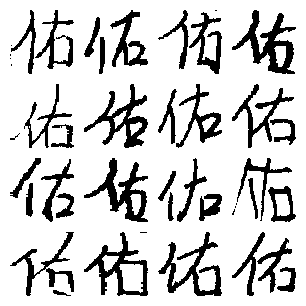 佑佑佑佑
佑佑佑佑
佑佑佑佑
佑佑佑佑